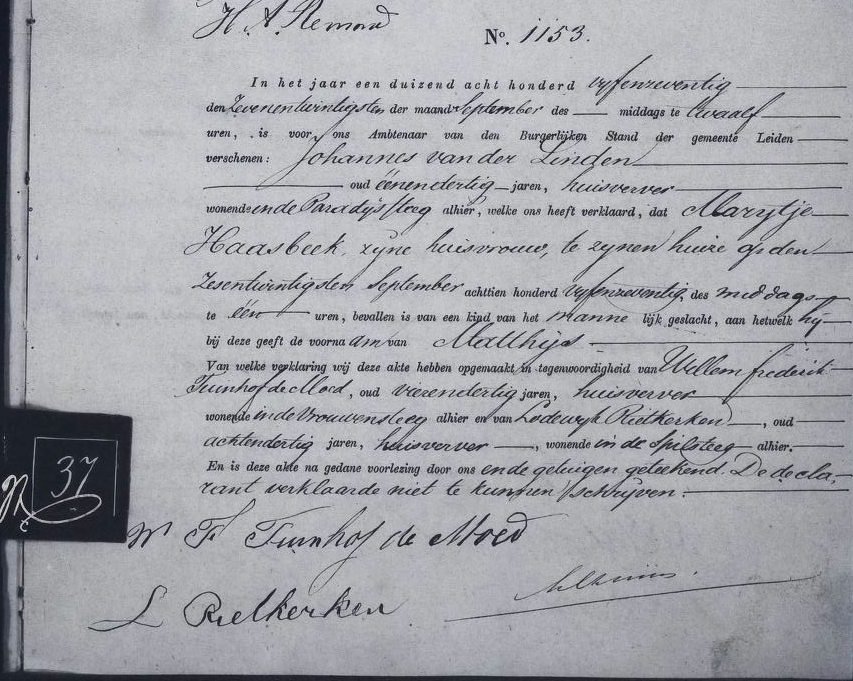 H. A. Remond
No. 1153.
In het jaar een duizend acht honderd vyfenzeventig
den Zevenentwintigsten der maand September des middags te twaalf
uren, is voor ons Ambtenaar van den Burgerlijken Stand der gemeente Leiden
verschenen: Johannes van der Linden
oud éénendertig jaren, huisverver
wonende in de Paradijssteeg alhier, welke ons heeft verklaard, dat Marytje
Haasbeek, zyne huisvrouw, te zynen huize op den
Zesentwintigsten September achttien honderd vyfenzeventig, des middags
te één uren, bevallen is van een kind van het manne lijk geslacht, aan hetwelk hij
bij deze geeft de voorna am van Matthijs
Van welke verklaring wij deze akte hebben opgemaakt in tegenwoordigheid van Willem frederik
Tuinhof de Moed, oud vierendertig jaren, huisverver
wonende in de Vrouwensteeg alhier en van Lodewyk Rietkerken, oud
achtendertig jaren, huisverver, wonende in de Spilsteeg alhier.
En is deze akte na gedane voorlezing door ons en de getuigen geteekend. De decla-
rant verklaarde niet te kunnen schrijven.
37
W F Tuinhof de Moed
L Rietkerken